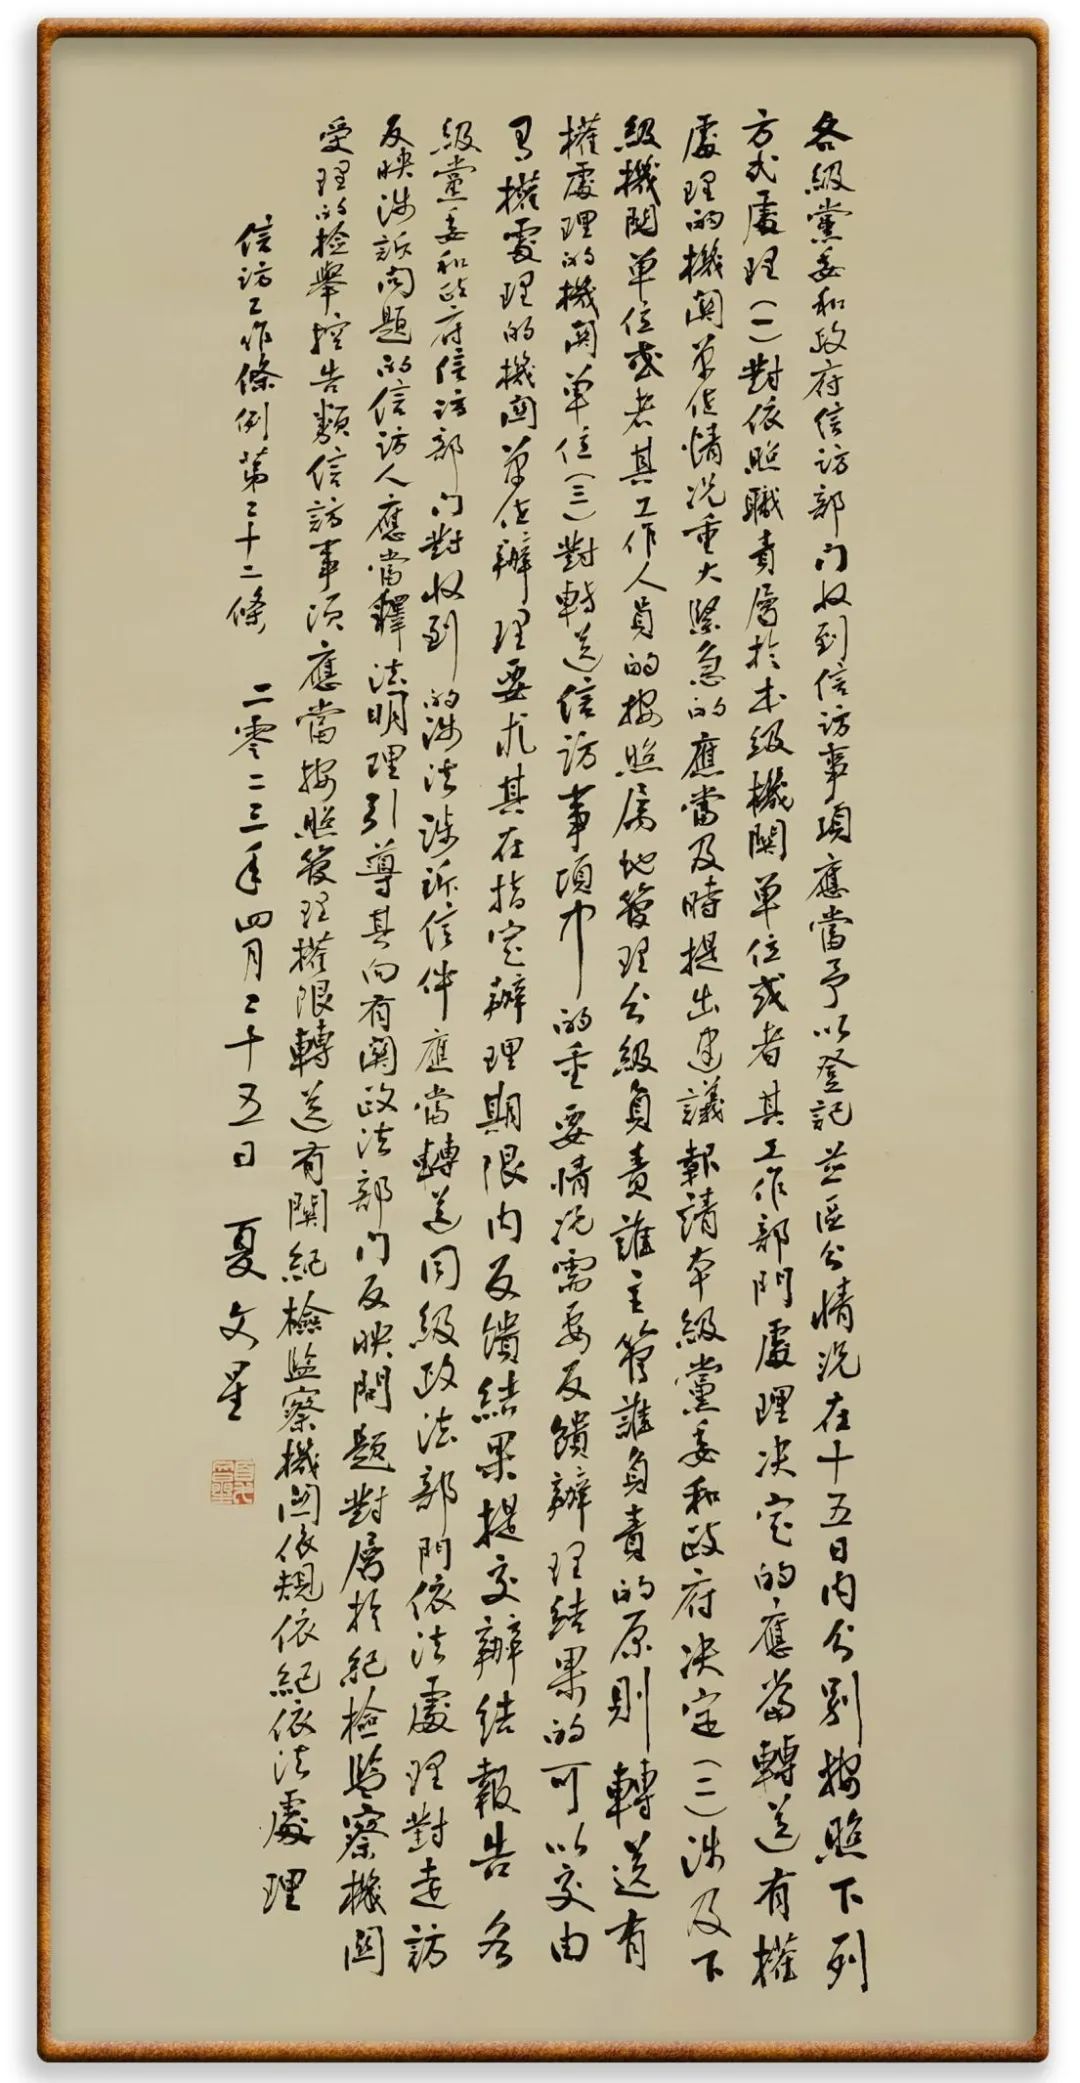 各級黨委和政府信訪部门收到信訪事項應當予以登記並區分情況在十五日内分別按照下列
方式處理(一)對依照職責屬於本級機関單位或者其工作部門處理决定的應當轉送有權
處理的機関单位情况重大緊急的應當及時提出建議報請本級黨委和政府决定(二)涉及下
級機関單位或者其工作人員的按照属地管理分級負責誰主管誰負責的原則轉送有
權處理的機関單位(三)對轉送信訪事項中的重要情况需要反饋辦理結果的可以交由
有權處理的機関单位辦理要求其在指定辦理期限内反饋結果提交辦結報告各
級黨委和政府信訪部门對收到的涉法涉訴信件應當轉送同級政法部門依法處理對走訪
反映涉訴问題的信訪人應當釋法明理引導其向有関政法部门反映問題對屬於紀檢監察機関
受理的檢舉控告類信訪事项應當按照管理權限轉送有関紀檢監察機関依規依紀依法處理
信訪工作條例第二十二條 二零二三年四月二十五日 夏文星